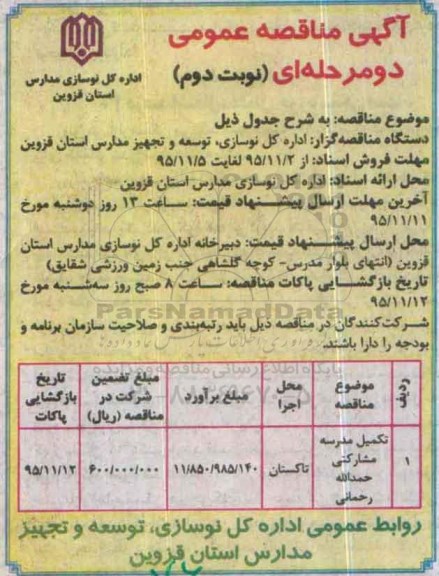 آگهی مناقصه عمومی
دومرحله‌ای (نوبت دوم)
اداره کل نوسازی مدارس
استان قزوین
موضوع مناقصه: به شرح جدول ذیل
دستگاه مناقصه‌گزار: اداره کل نوسازی، توسعه و تجهیز مدارس استان قزوین
مهلت فروش اسناد: از ۹۵/۱۱/۲ لغایت ۹۵/۱۱/۵
محل ارائه اسناد: اداره کل نوسازی مدارس استان قزوین
آخرین مهلت ارسال پیشنهاد قیمت: ساعت ۱۳ روز دوشنبه مورخ
۹۵/۱۱/۱۱
محل ارسال پیشنهاد قیمت: دبیرخانه اداره کل نوسازی مدارس استان
قزوین (انتهای بلوار مدرس- کوچه گلشاهی جنب زمین ورزشی شقایق)
تاریخ بازگشایی پاکات مناقصه: ساعت ۸ صبح روز سه‌شنبه مورخ
۹۵/۱۱/۱۲
ParsNamadData
شرکت‌کنندگان در مناقصه ذیل باید رتبه‌بندی و صلاحیت سازمان برنامه و
بودجه را دارا باشند.
پایگاه اطلاع رسانی مناقصه و مزایده
ردیف | موضوع مناقصه | محل اجرا | مبلغ برآورد | مبلغ تضمین شرکت در مناقصه (ریال) | تاریخ بازگشایی پاکات
۱ | تکمیل مدرسه مشارکتی حمدالله رحمانی | تاکستان | ۱۱/۸۵۰/۹۸۵/۱۴۰ | ۶۰۰/۰۰۰/۰۰۰ | ۹۵/۱۱/۱۲
روابط عمومی اداره کل نوسازی، توسعه و تجهیز
مدارس استان قزوین